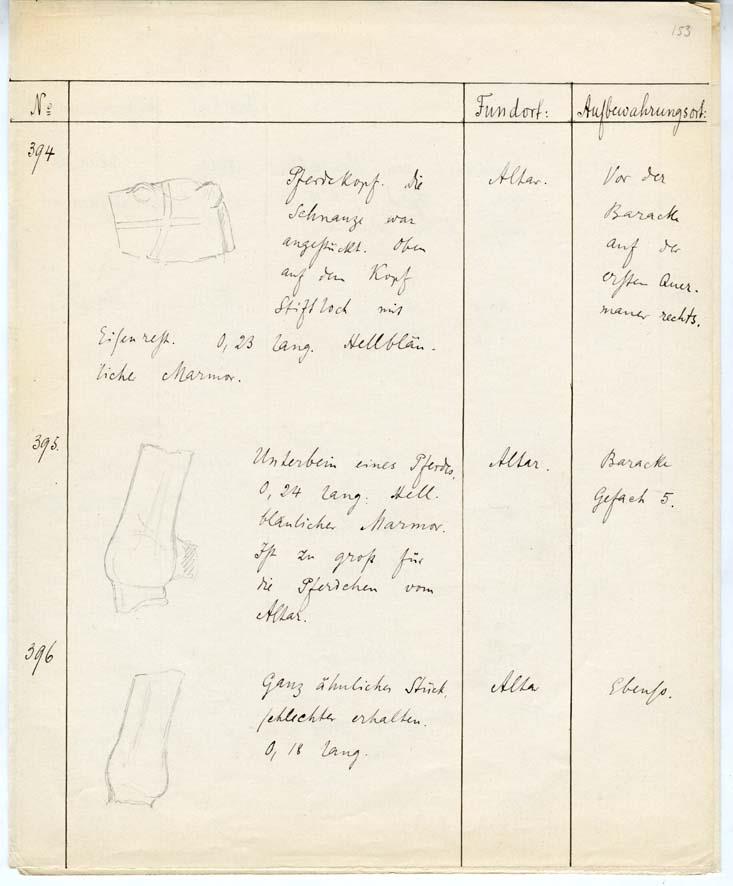 153
No Fundort: Aufbewahrungsort:
394
Pferdekopf. Die
Schnauze war
angestückt. Oben
auf dem Kopf
Stiftloch mit
Eisenrest. 0,23 lang. Hellbläu-
licher Marmor.
Altar.
Vor der
Baracke
auf der
ersten Quer-
mauer rechts.
395.
Unterbein eines Pferdes.
0,24 lang. Hell-
bläulicher Marmor.
Ist zu groß für
die Pferdchen vom
Altar.
Altar.
Baracke
Gefach 5.
396
Ganz ähnliches Stück,
schlechter erhalten.
0,18 lang.
Altar
Ebenso.